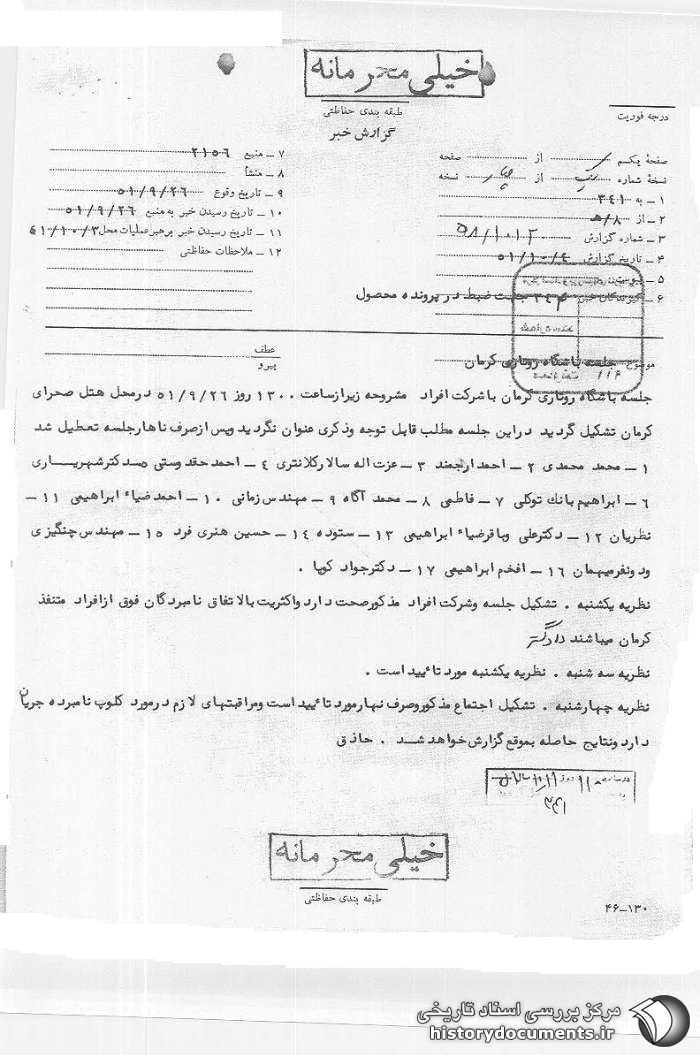 خیلی محرمانه
طبقه بندی حفاظتی
گزارش خبر
درجه فوریت
صفحه یکم از صفحه
نسخه شماره از نسخه
۱ ـ به ۳۴۱
۲ ـ از ۸/هـ
۳ ـ شماره گزارش
۴ ـ تاریخ گزارش ۵۱/۱۰/۴
۵ ـ پیوست
۶ ـ گیرندگان خبر ۳۴۴ جهت ضبط در پرونده محصول
۷ ـ منبع ۲۱۵۶
۸ ـ منشأ
۹ ـ تاریخ وقوع ۵۱/۹/۲۶
۱۰ ـ تاریخ رسیدن خبر به منبع ۵۱/۹/۲۶
۱۱ ـ تاریخ رسیدن خبر برهبر عملیات محل ۵۱/۱۰/۳
۱۲ ـ ملاحظات حفاظتی
موضوع جلسه باشگاه روتاری کرمان
عطف
پیرو
جلسه باشگاه روتاری کرمان با شرکت افراد مشروحه زیر از ساعت ۱۳۰۰ روز ۵۱/۹/۲۶ در محل هتل صحرای
کرمان تشکیل گردید در این جلسه مطلب قابل توجه و ذکری عنوان نگردید و پس از صرف ناهار جلسه تعطیل شد
۱ ـ محمد محمدی ۲ ـ احمد ارجمند ۳ ـ عزت اله سالار کلانتری ۴ ـ احمد حقدوستی ۵ ـ دکتر شهریاری
۶ ـ ابراهیم بانک توکلی ۷ ـ فاطمی ۸ ـ محمد آگاه ۹ ـ مهندس زمانی ۱۰ ـ احمد ضیاء ابراهیمی ۱۱ ـ
نظریان ۱۲ ـ دکتر علی وباقر ضیاء ابراهیمی ۱۳ ـ ستوده ۱۴ ـ حسین هنری فرد ۱۵ ـ مهندس چنگیزی
و دو نفر میهمان ۱۶ ـ افخم ابراهیمی ۱۷ ـ دکتر جواد کوپا .
نظریه یکشنبه . تشکیل جلسه و شرکت افراد مذکور صحت دارد و اکثریت بالاتفاق نامبردگان فوق از افراد متنفذ
کرمان میباشند دادگستر
نظریه سه شنبه . نظریه یکشنبه مورد تائید است .
نظریه چهارشنبه . تشکیل اجتماع مذکور و صرف نهار مورد تائید است و مراقبتهای لازم در مورد کلوپ نامبرده جریان
دارد و نتایج حاصله بموقع گزارش خواهد شد . حاذق
خیلی محرمانه
طبقه بندی حفاظتی
۴۶-۱۳۰
مرکز بررسی اسناد تاریخی
historydocuments.ir